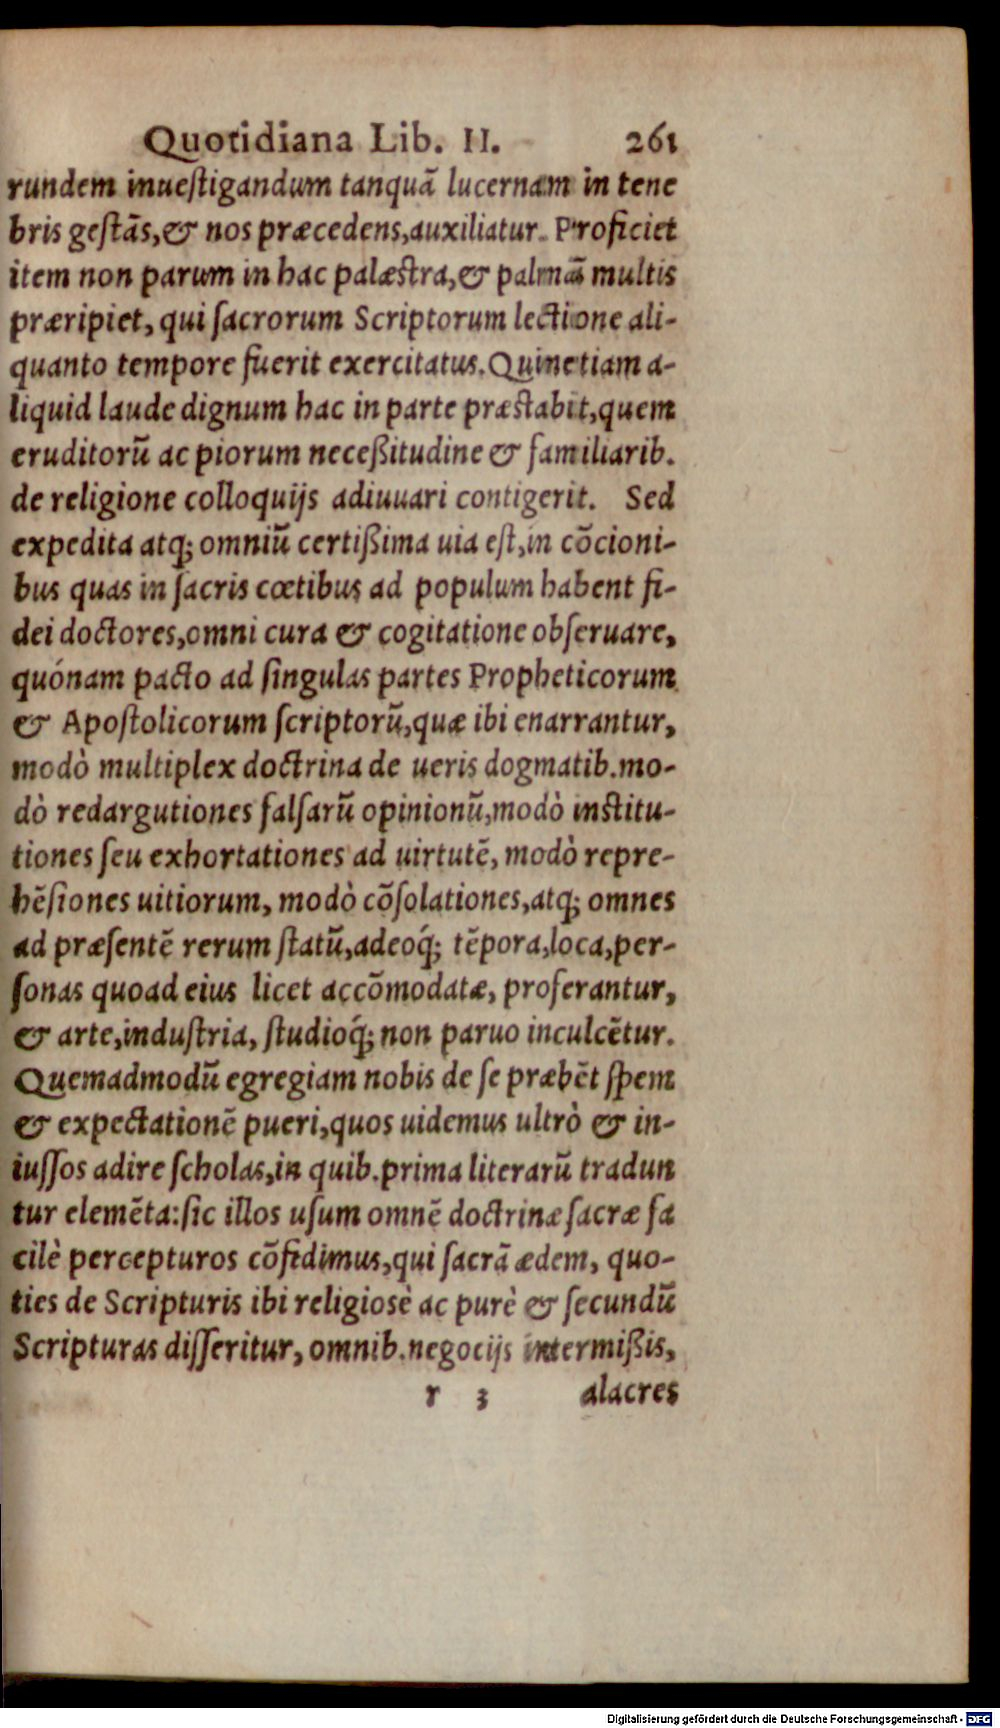 Quotidiana Lib. II. 261
rundem inueſtigandum tanquã lucernam in tene
bris geſtãs,& nos præcedens,auxiliatur. Proficiet
item non parum in hac palæstra,& palmã multis
præripiet, qui ſacrorum Scriptorum lectione ali-
quanto tempore fuerit exercitatus. Quinetiam a-
liquid laude dignum hac in parte præstabit,quem
eruditorũ ac piorum neceßitudine & familiarib.
de religione colloquijs adiuuari contigerit. Sed
expedita atq; omniũ certißima uia eſt,in cõcioni-
bus quas in ſacris cœtibus ad populum habent fi-
dei doctores,omni cura & cogitatione obſeruare,
quónam pacto ad ſingulas partes Propheticorum
& Apoſtolicorum ſcriptorũ,quæ ibi enarrantur,
modò multiplex doctrina de ueris dogmatib.mo-
dò redargutiones falſarũ opinionũ,modò institu-
tiones ſeu exhortationes ad uirtutẽ, modò repre-
hẽſiones uitiorum, modò cõſolationes,atq; omnes
ad præſentẽ rerum ſtatũ,adeoq́; tẽpora,loca,per-
ſonas quoad eius licet accõmodatæ, proferantur,
& arte,induſtria, ſtudioq́; non paruo inculcẽtur.
Quemadmodũ egregiam nobis de ſe præbẽt ſpem
& expectationẽ pueri,quos uidemus ultrò & in-
iuſſos adire ſcholas,in quib.prima literarũ tradun
tur elemẽta:ſic illos uſum omnẽ doctrinæ ſacræ fa
cilè percepturos cõfidimus,qui ſacrã ædem, quo-
ties de Scripturis ibi religiosè ac purè & ſecundũ
Scripturas diſſeritur, omnib.negocijs intermißis,
r 3 alacres
Digitalisierung gefördert durch die Deutsche Forschungsgemeinschaft - DFG